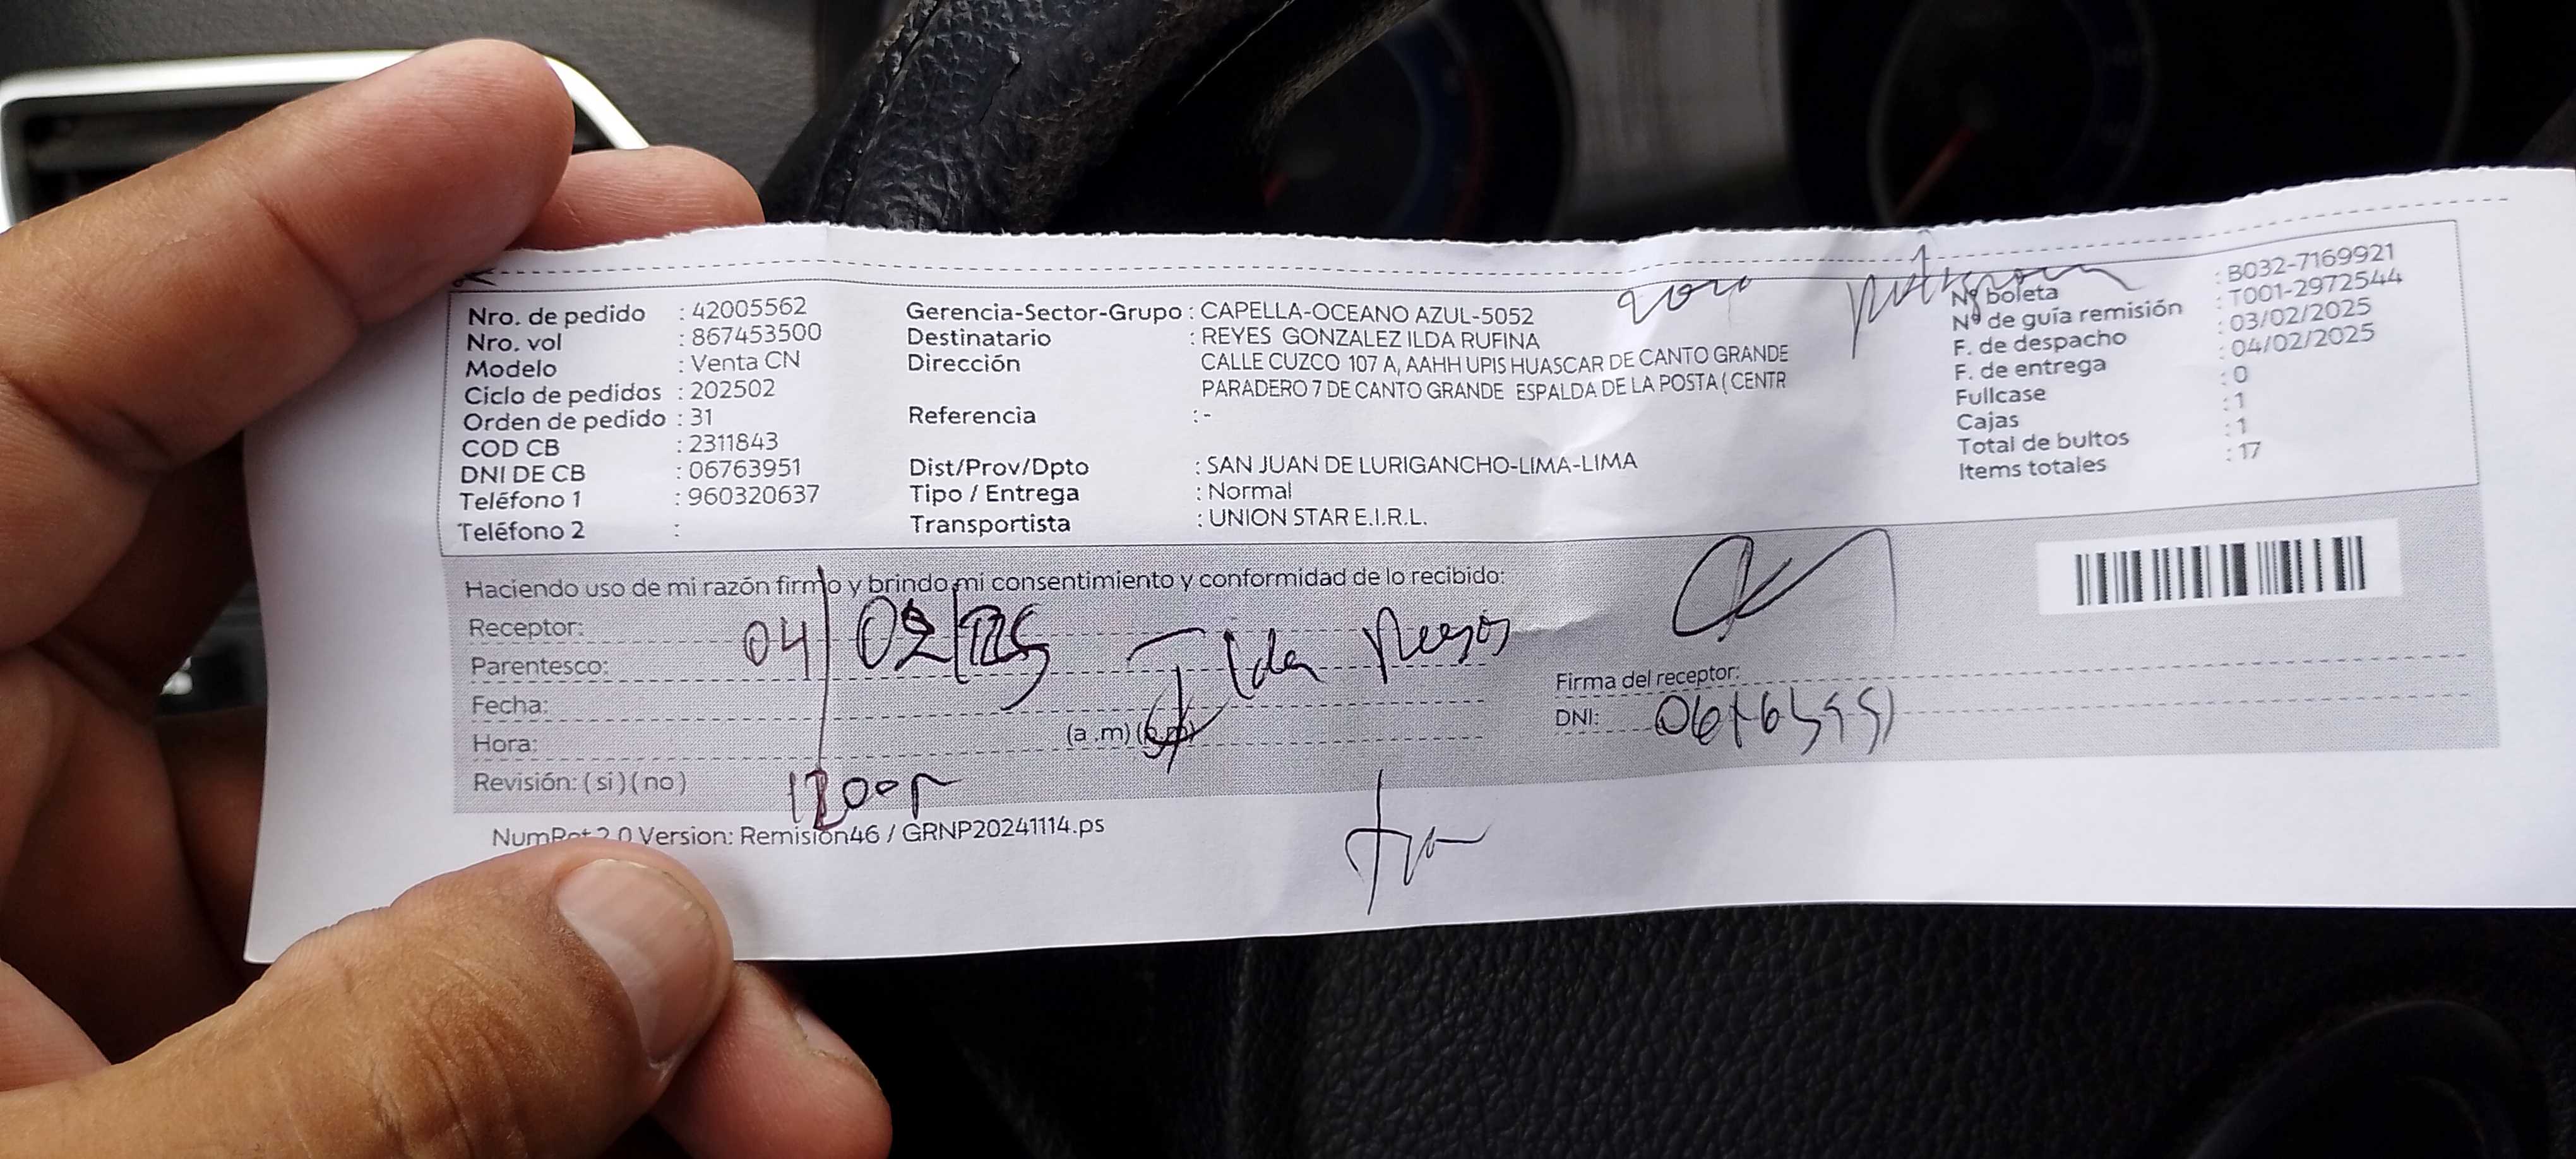 Nro. de pedido : 42005562
Nro. vol : 867453500
Modelo : Venta CN
Ciclo de pedidos : 202502
Orden de pedido : 31
COD CB : 2311843
DNI DE CB : 06763951
Teléfono 1 : 960320637
Teléfono 2 :
Gerencia-Sector-Grupo : CAPELLA-OCEANO AZUL-5052
Destinatario : REYES GONZALEZ ILDA RUFINA
Dirección CALLE CUZCO 107 A, AAHH UPIS HUASCAR DE CANTO GRANDE
PARADERO 7 DE CANTO GRANDE ESPALDA DE LA POSTA ( CENTR
Referencia : -
Dist/Prov/Dpto : SAN JUAN DE LURIGANCHO-LIMA-LIMA
Tipo / Entrega : Normal
Transportista : UNION STAR E.I.R.L.
Nº boleta : B032-7169921
Nº de guía remisión : T001-2972544
F. de despacho : 03/02/2025
F. de entrega : 04/02/2025
Fullcase : 0
Cajas : 1
Total de bultos : 1
Items totales : 17
Haciendo uso de mi razón firmo y brindo mi consentimiento y conformidad de lo recibido:
Receptor:
Parentesco: 04/02/25 Ilda Reyes
Fecha:
Hora: (a .m) (p.m)
Revisión: ( si ) ( no )
Firma del receptor:
DNI: 06763951
Version: Remisión46 / GRNP20241114.ps